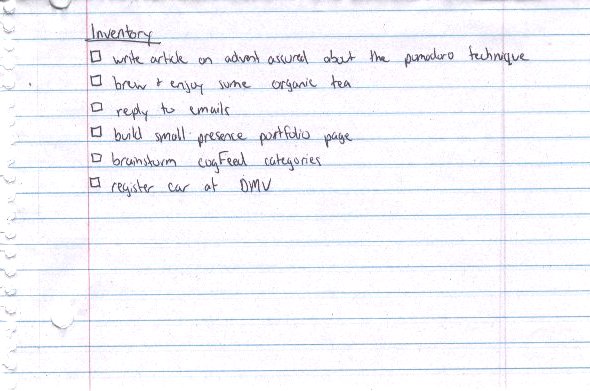 Inventory
☐ write article on advent assured about the pomodoro technique
☐ brew + enjoy some organic tea
☐ reply to emails
☐ build small presence portfolio page
☐ brainstorm cogFeed categories
☐ register car at DMV